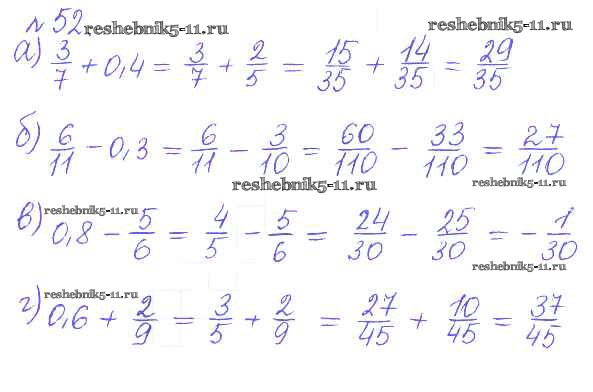 № 52.
reshebnik5-11.ru
reshebnik5-11.ru
а) 3/7 + 0,4 = 3/7 + 2/5 = 15/35 + 14/35 = 29/35
б) 6/11 − 0,3 = 6/11 − 3/10 = 60/110 − 33/110 = 27/110
reshebnik5-11.ru
reshebnik5-11.ru
reshebnik5-11.ru
в) 0,8 − 5/6 = 4/5 − 5/6 = 24/30 − 25/30 = − 1/30
reshebnik5-11.ru
reshebnik5-11.ru
г) 0,6 + 2/9 = 3/5 + 2/9 = 27/45 + 10/45 = 37/45